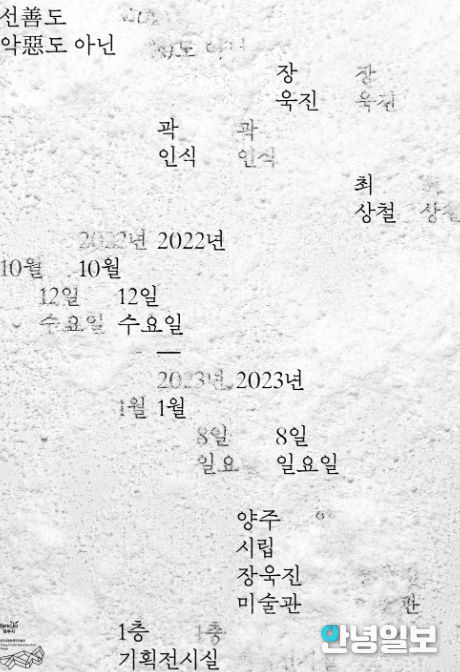 선善도
악惡도 아닌
장 장
욱진 욱진
곽 곽
인식 인식
최
상철 상철
2022년 2022년
10월 10월
12일 12일
수요일 수요일
—
2023년 2023년
1월 1월
8일 8일
일요 일요일
양주
시립
장욱진
미술관 관
1층 1층
기획전시실
안녕일보